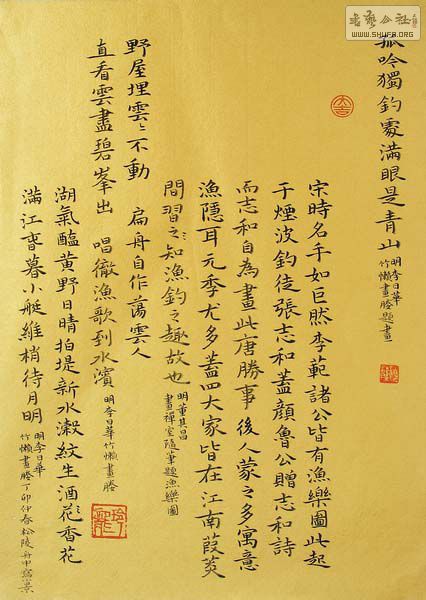 書藝公社
WWW.SHUFA.ORG
孤吟獨釣處滿眼是青山
明李日華
竹懶畫媵題畫
大吉
宋時名手如巨然李範諸公皆有漁樂圖此起
于煙波釣徒張志和蓋顏魯公贈志和詩
而志和自為畫此唐勝事後人蒙之多寓意
漁隱耳元季尤多蓋四大家皆在江南葭菼
間習之知漁釣之趣故也
明董其昌
畫禪室隨筆題漁樂圖
野屋埋雲〻不動 扁舟自作蕩雲人
直看雲盡碧峯出 唱徹漁歌到水濱 明李日華竹懶畫媵
湖氣醞黃野日晴拍堤新水瀔紋生酒花香花
滿江暮小艇維梢待月明
明李日華
竹懶畫媵丁卯仲春松陵舟中寫景